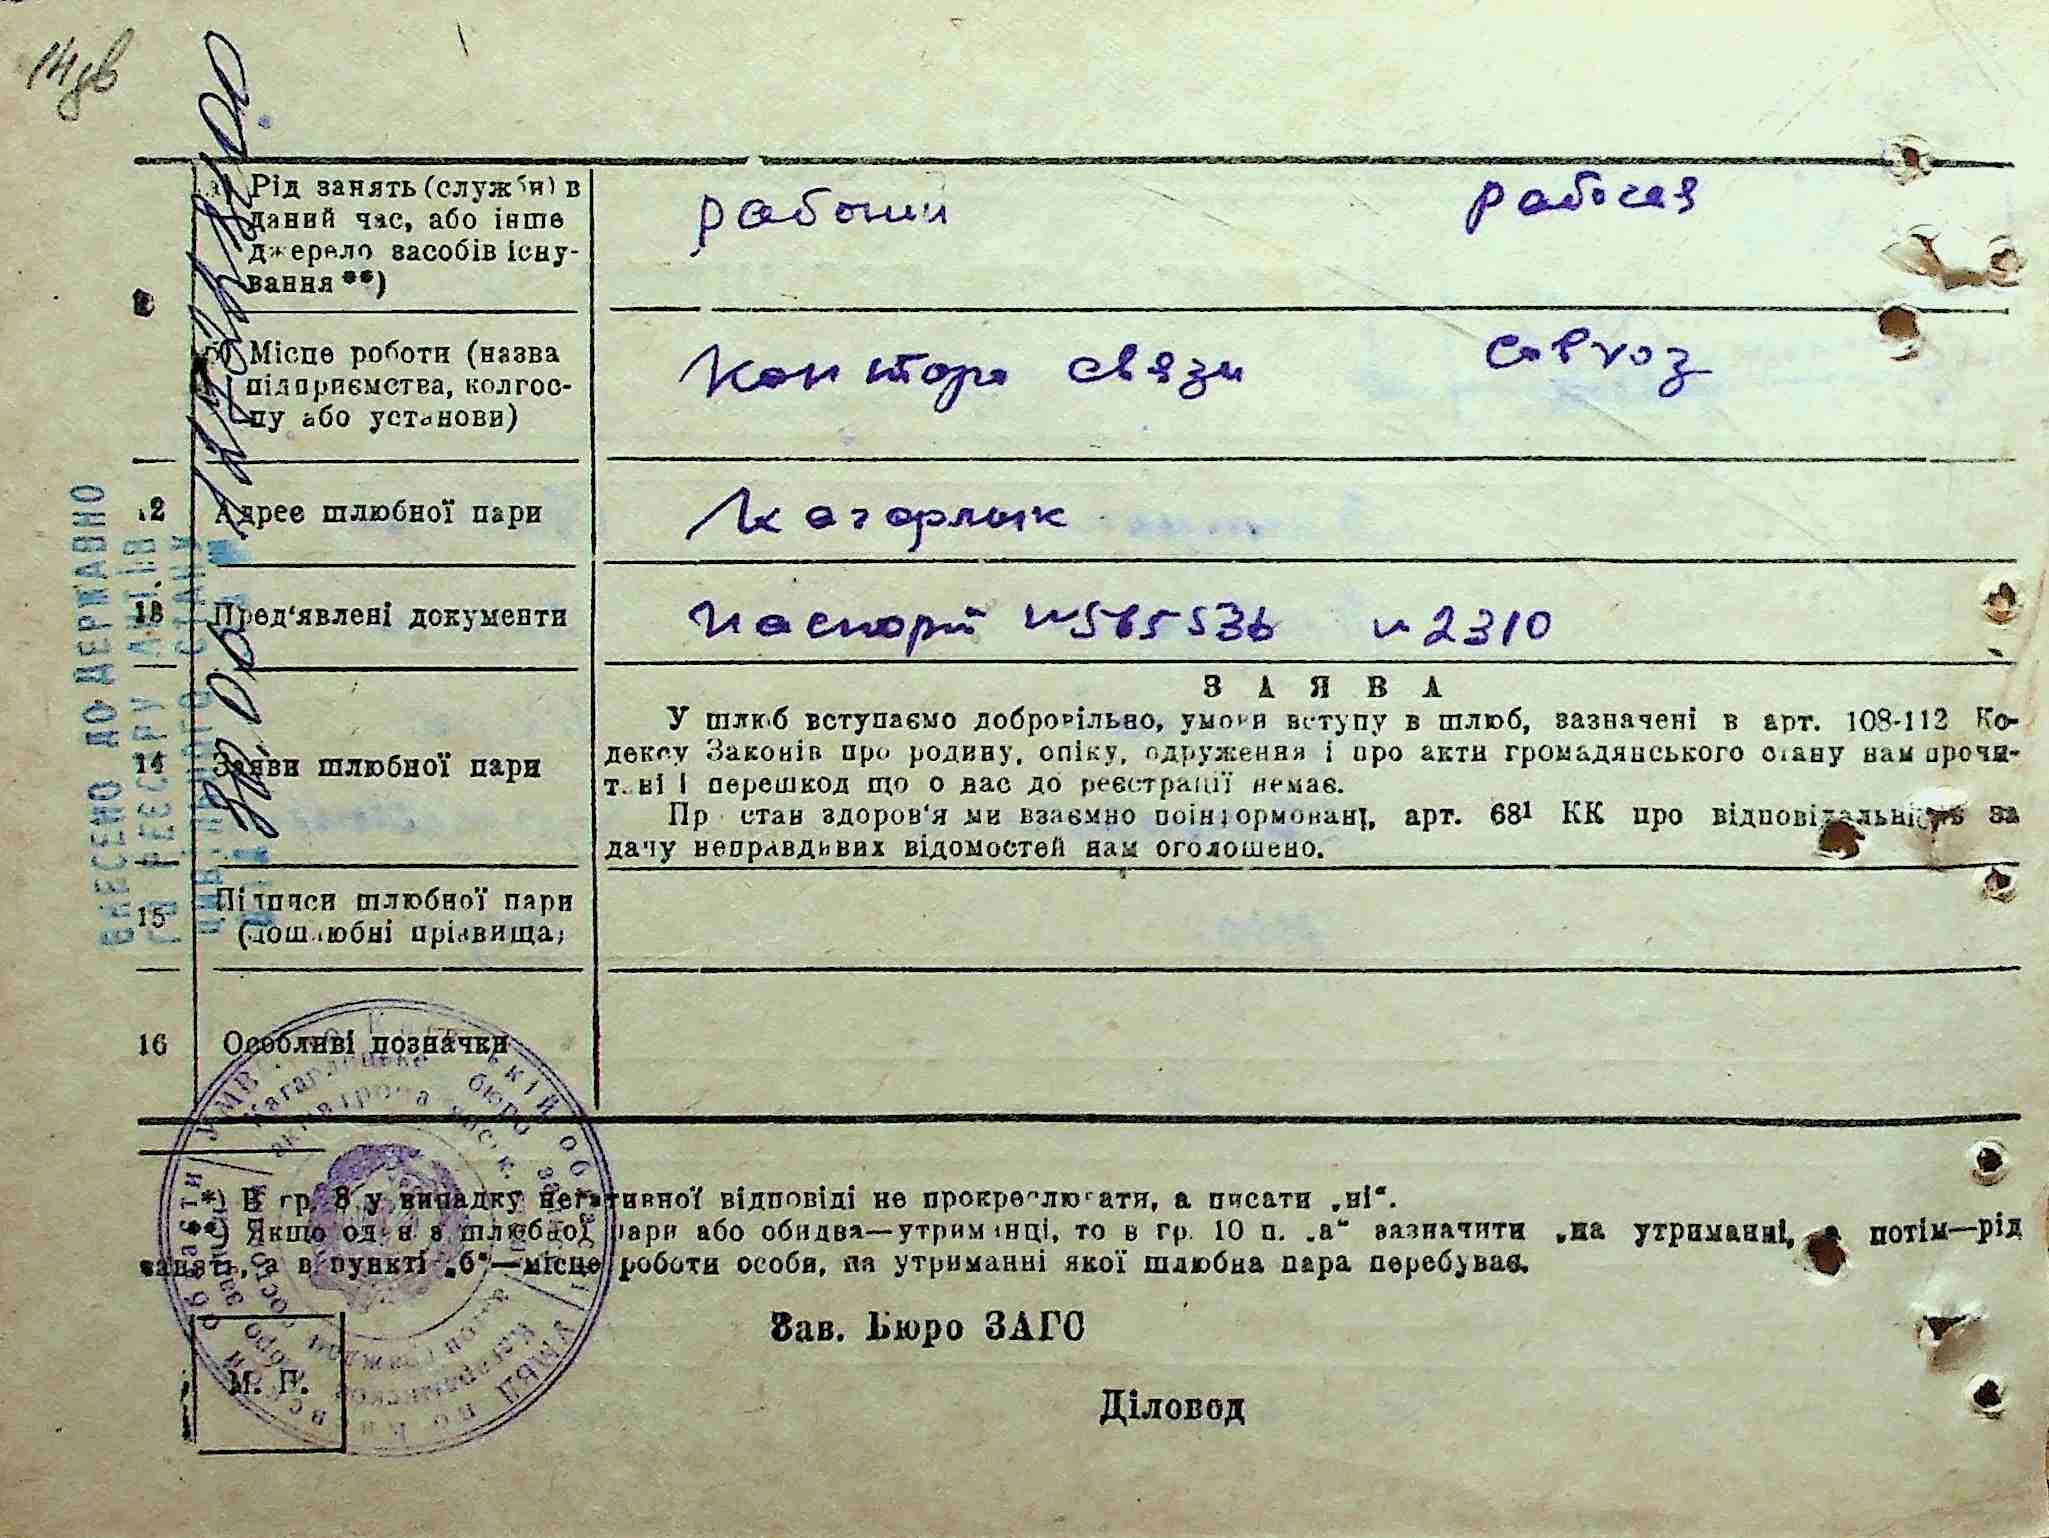 а) Рід занять (служби) в
даний час, або інше
джерело засобів існу-
вання **)
рабочий
рабочая
б) Місце роботи (назва
підприємства, колгос-
пу або установи)
Контора связи
совхоз
12 Адрес шлюбної пари
Кагарлык
13 Пред'явлені документи
паспорт №565536 №2310
14 Заяви шлюбної пари
ЗАЯВА
У шлюб вступаємо добровільно, умови вступу в шлюб, зазначені в арт. 108-112 Ко-
дексу Законів про родину, опіку, одруження і про акти громадянського стану нам прочи-
тані і перешкод що о нас до реєстрації немає.
Пр стан здоров'я ми взаємно поінформовані, арт. 68¹ КК про відповідальність за
дачу неправдивих відомостей нам оголошено.
15 Підписи шлюбної пари
(дошлюбні прізвища)
16 Особливі позначки
*) В гр. 8 у випадку негативної відповіді не прокреслювати, а писати „ні“.
**) Якщо один з шлюбної пари або обидва—утриманці, то в гр. 10 п. „а“ зазначити „на утриманні, а потім—рід
занять, а в пункті „б“—місце роботи особи, на утриманні якої шлюбна пара перебуває.
Зав. Бюро ЗАГС
Діловод
М. П.
ВНЕСЕНО ДО ДЕРЖАВНО
ГО РЕЄСТРУ АКТІВ
ЦИВІЛЬНОГО СТАНУ